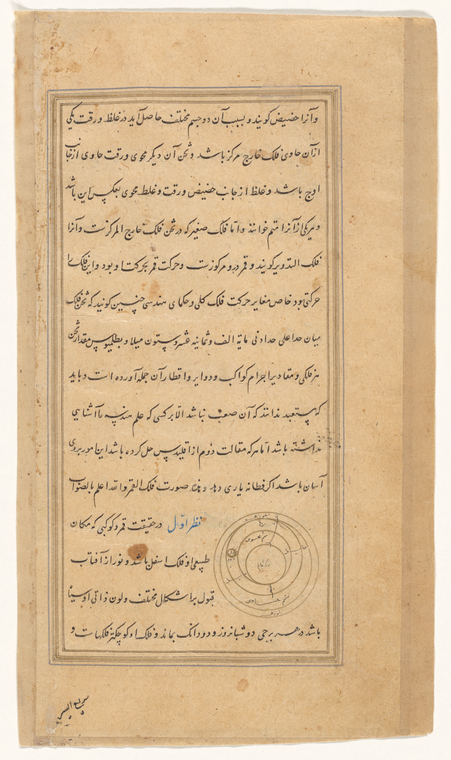 وآنرا حضیض کویند و بسبب آن دو جسم مختلف حاصل آید در غلظ و رقت یکی
ازان حاوی فلک خارج مرکز باشد و ثخن آن دیکر محوی و رقت حاوی از جانب
اوج باشد و غلظ از جانب حضیض و رقت و غلظ محوی بعکس این باشد
و هر یکی از آنرا متمم خوانند و اما فلک صغیر که در ثخن فلک خارج المرکزست وآنرا
فلک التدویر کویند و قمر درو مرکوزست و حرکت قمر بحرکت او بود و این فلک را
حرکتی بود خاص مغایر حرکت فلک کلی و حکمای هندسی چنین کویند که ثخن فلک
میان حد اعلی حد ادنی مایة الف و ثمانیه عشر و ستون میلا و بطلیموس مقدار ثخن
هر فلکی و مقادیر اجرام کواکب و دوایر و اقطار آن جمله آورده است و باید
که مستبعد ندانند که آن صعب نباشد الا بر کسی که علم هندسه را آشنایی
نداشته باشد اما هر که مقالت دوم از اقلیدس حل کرده باشد این امور بروی
آسان باشد اکر فطانه یاری دهد و هذه صورت فلک القمر والله اعلم بالصواب
نظر اول در حقیقت قمر و کوکبی که مکان
طبیعی او فلک اسفل باشد و نور از آفتاب
قبول بر اشکال مختلف و لون ذاتی او سیاه
باشد در هر برجی دو شبانروز و دو دانک بماند و فلک او کوچکتر فلکهاست و